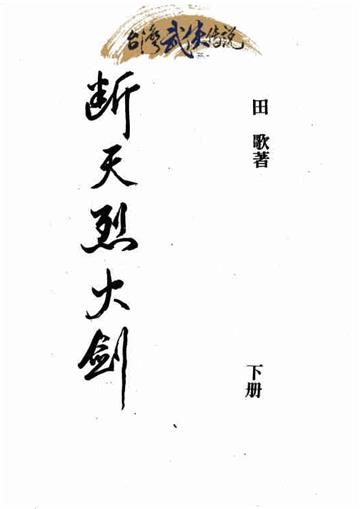 台湾武侠传说
断天烈火剑
田歌著
下册